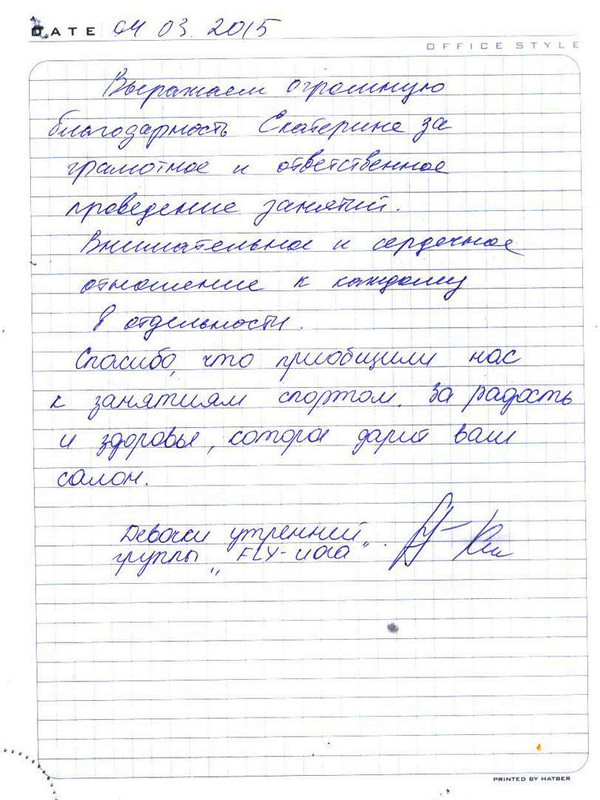 DATE 04 03. 2015
OFFICE STYLE
Выражаем огромную
благодарность Екатерине за
грамотное и ответственное
проведение занятий.
Внимательное и сердечное
отношение к каждому
в отдельности.
Спасибо, что приобщили нас
к занятиям спортом. За радость
и здоровье, которое дарит ваш
салон.
Девочки утренней
группы „FLY-йога”.
PRINTED BY HATBER